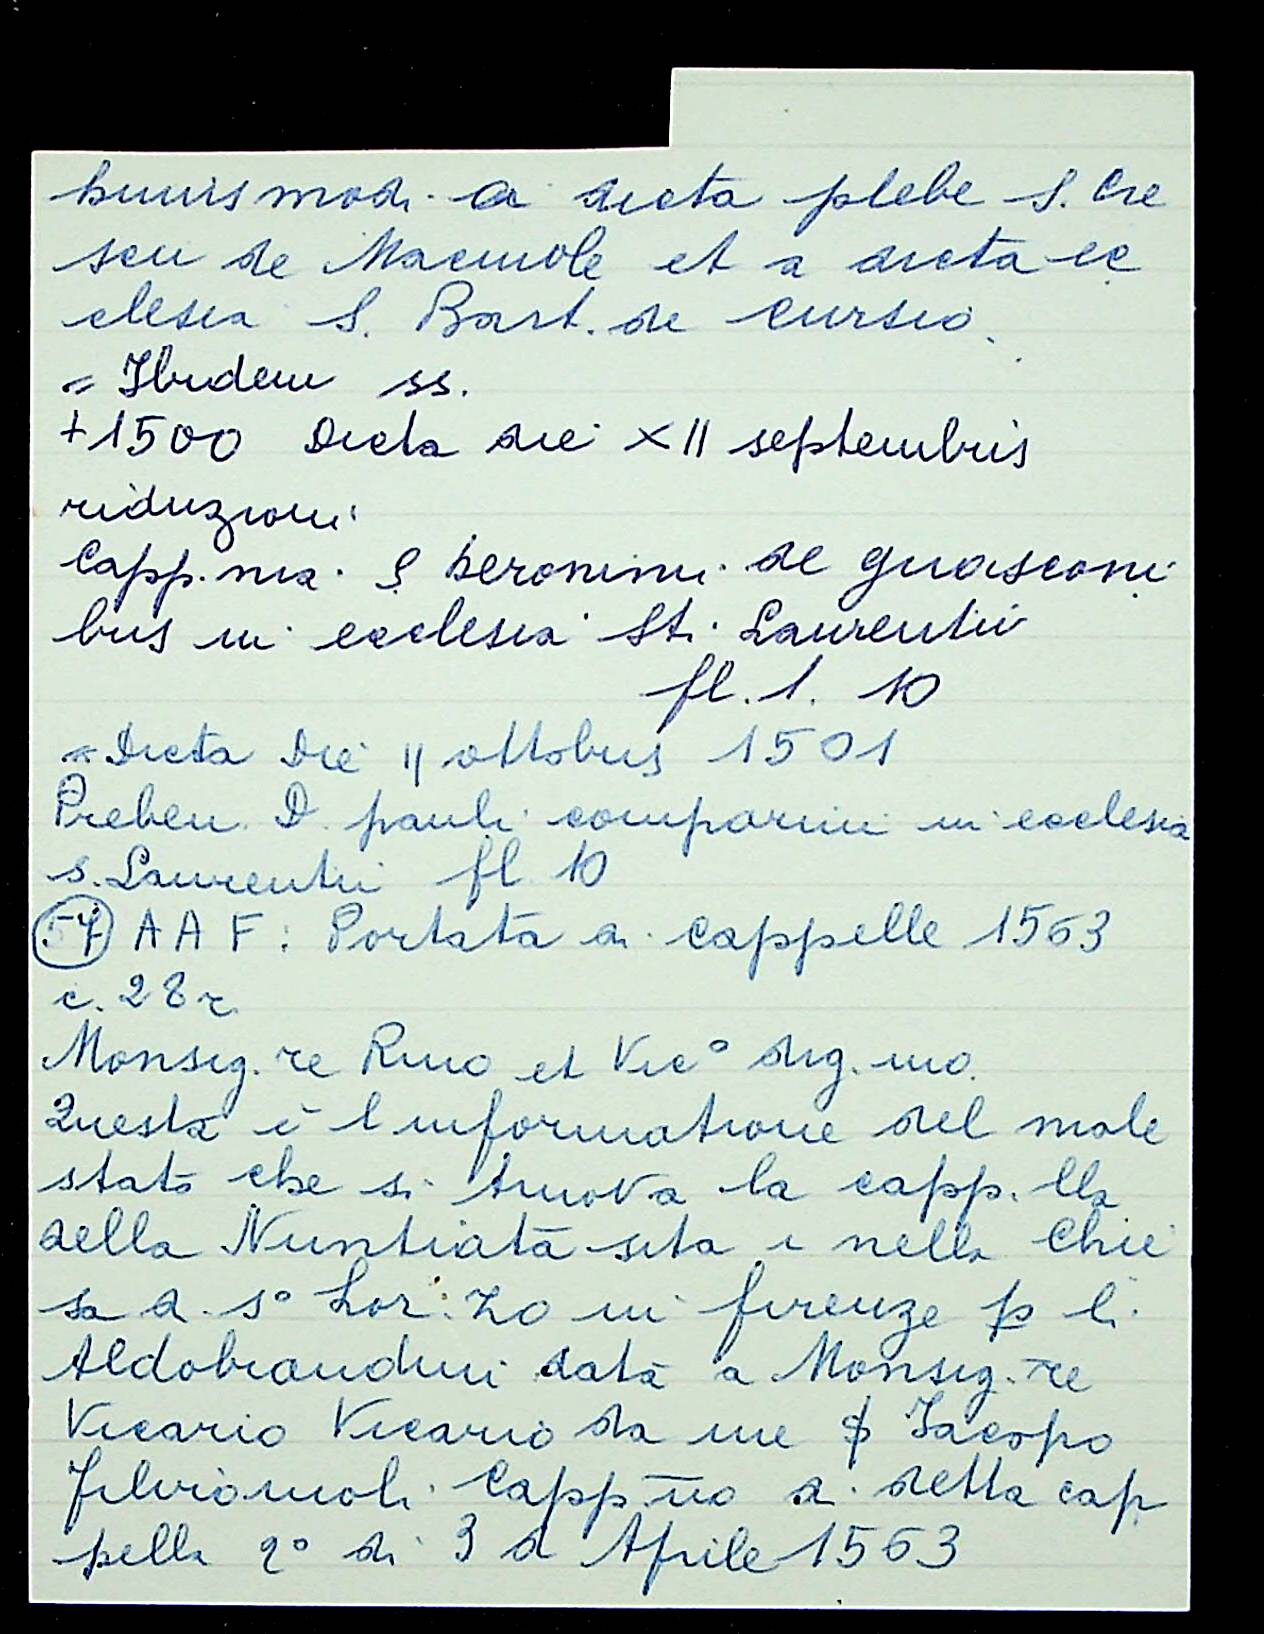 huiusmodi a dicta plebe S. Cre
sci de Maciuole et a dicta ec
clesia S. Bart. de Cursio.
= Ibidem ss.
+1500 Dicta die XII septembris
riduzioni
Capp.nia S Heronimi de guasconi
bus in ecclesia Sti. Laurentii
fl. 1. 10
= Dicta Die 11 ottobris 1501
Preben D. pauli comparini in ecclesia
S. Laurentii fl 10
57 A A F: Portata di cappelle 1563
c. 28 r.
Monsig.re Rmo et Vic° dig.mo.
Questa è l informatione del male
stato che si truova la capp.lla
della Nuntiata sita i nella Chie
sa di s° Lor:zo in firenze p li
Aldobrandini data a Monsig.re
Vicario Vicario da me Iacopo
Capp.no di detta cap
pella q° di 3 d Aprile 1563